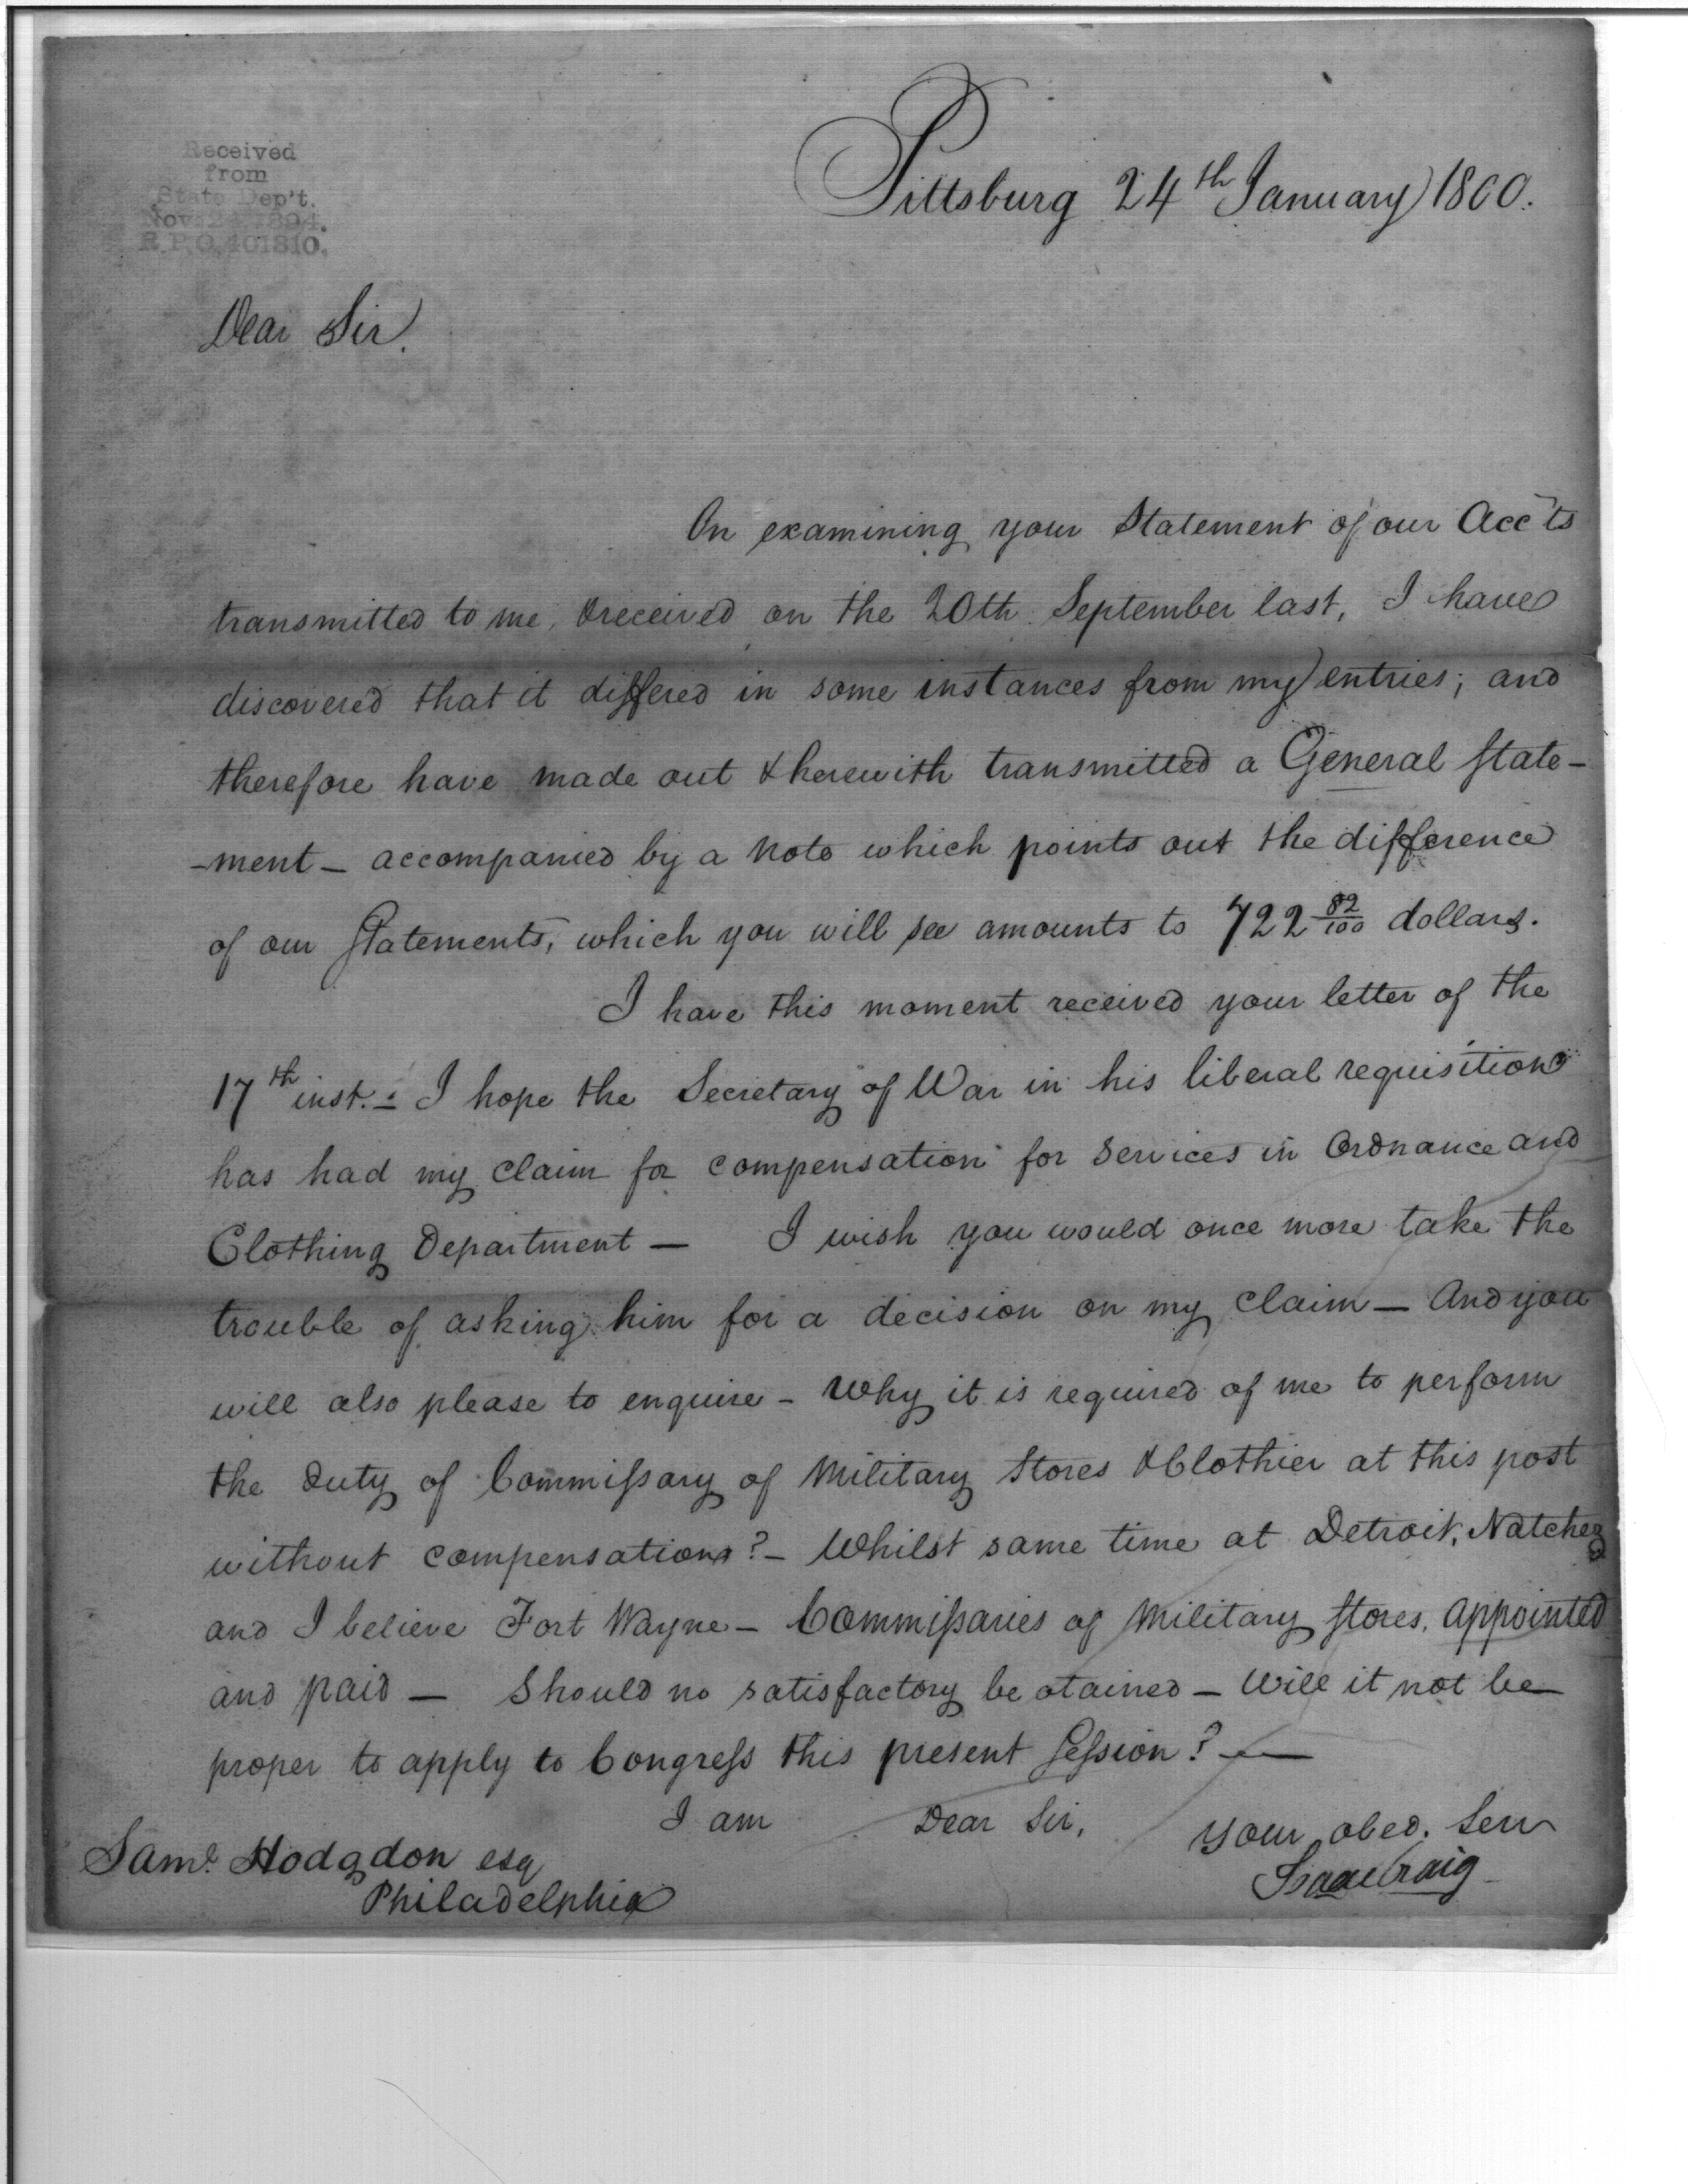 Received
from
State Dep't.
Nov. 24 1894.
R.P.O. 401810.
Pittsburg 24th January 1800.
Dear Sir.
On examining your Statement of our Accts
transmitted to me, & received on the 20th September last, I have
discovered that it differed in some instances from my entries; and
therefore have made out & herewith transmitted a General State-
-ment - accompanied by a Note which points out the difference
of our Statements, which you will see amounts to 722 82/100 dollars.
I have this moment received your letter of the
17th inst. - I hope the Secretary of War in his liberal requisition
has had my claim for compensation for Services in Ordnance and
Clothing Department — I wish you would once more take the
trouble of asking him for a decision on my claim — And you
will also please to enquire - Why it is required of me to perform
the duty of Commissary of Military Stores & Clothier at this post
without compensation? - Whilst same time at Detroit, Natches
and I believe Fort Wayne - Commissaries of Military Stores, appointed
and paid — Should no satisfactory be otained — Will it not be
proper to apply to Congress this present Session? —
I am Dear Sir,
your obed. Serv
Isaac Craig
Saml. Hodgdon esq
Philadelphia